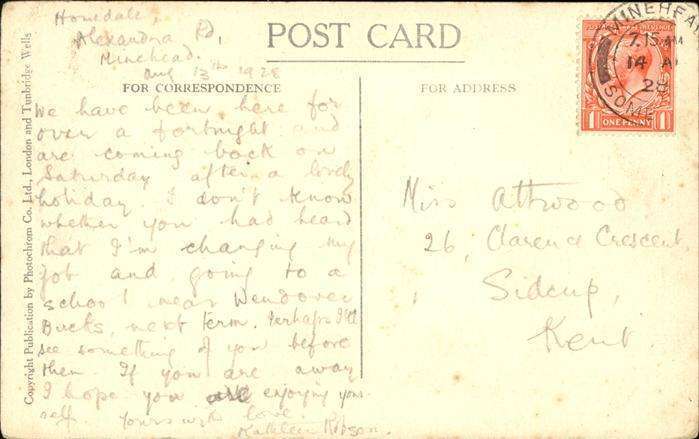 Homedale,
Alexandra Rd,
Minehead.
Aug 13th 1928
POST CARD
FOR CORRESPONDENCE
FOR ADDRESS
We have been here for
over a fortnight and
are coming back on
Saturday after a lovely
holiday. I don't know
whether you had heard
that I'm changing my
job and going to a
school near Wendover
Bucks, next term. Perhaps I'll
see something of you before
then. If you are away
I hope you are enjoying your-
self Yours with love
Kathleen
Miss Attwood
26, Clarence Crescent
Sidcup,
Kent.
MINEHEAD
7.15 AM
14 AU
28
SOME
ONE PENNY
1 1
Copyright Publication by Photochrom Co. Ltd., London and Tunbridge Wells